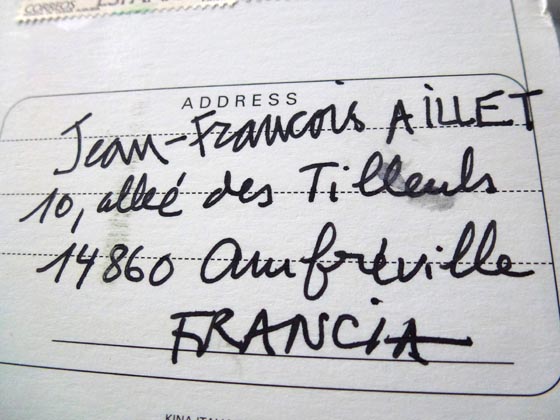 CORREOS
ADDRESS
Jean-Francois AILLET
10, allée des Tilleuls
14860 Amfréville
FRANCIA